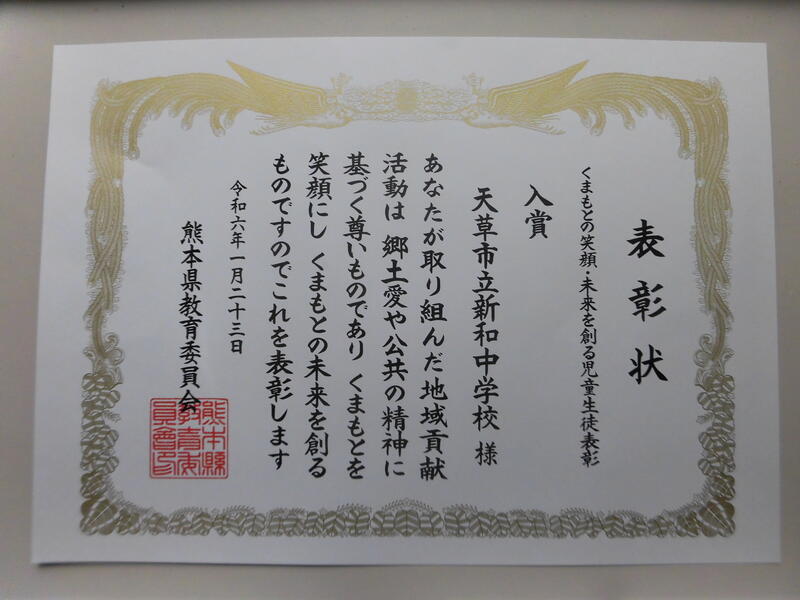 表彰状
くまもとの笑顔・未来を創る児童生徒表彰
入賞
天草市立新和中学校 様
あなたが取り組んだ地域貢献
活動は 郷土愛や公共の精神に
基づく尊いものであり くまもとを
笑顔にし くまもとの未来を創る
ものですのでこれを表彰します
令和六年一月二十三日
熊本県教育委員会
熊本縣
教育委
員會印